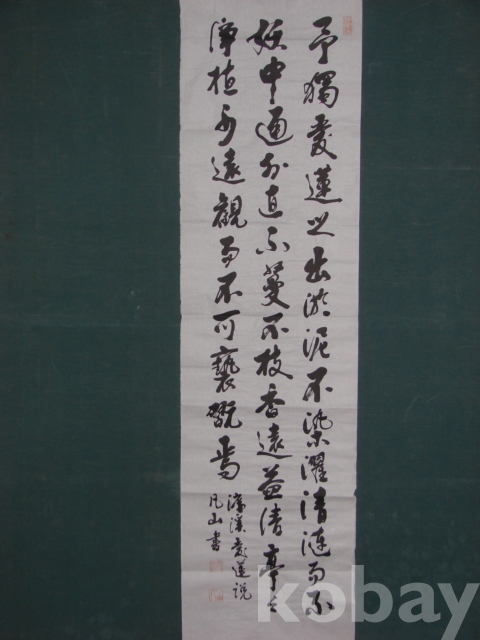 予獨愛蓮之出淤泥不染濯清漣而不
妖中通外直不蔓不枝香遠益清亭々
淨植可遠觀而不可褻翫焉
濂溪愛蓮說
凡山書
kobay